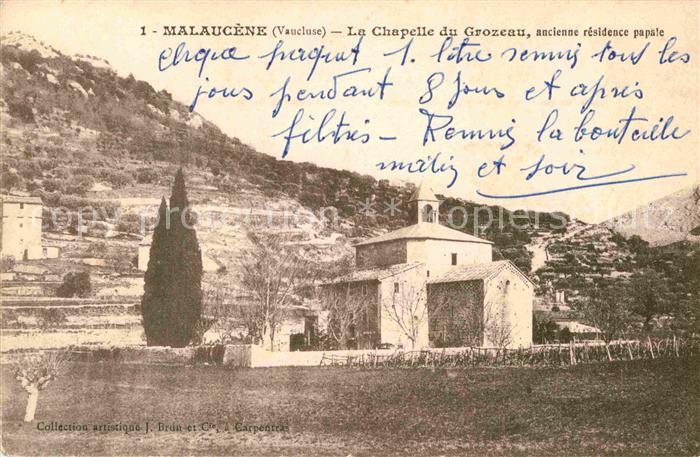 1 - MALAUCÈNE (Vaucluse) — La Chapelle du Grozeau, ancienne résidence papale
chaque paquet 1. litre remuis tous les
jours pendant 8 jours et après
filtrés — Remuis la bouteille
matin et soir
copyright protection *** Kopierschutz
Collection artistique J. Brun et Cie, à Carpentras